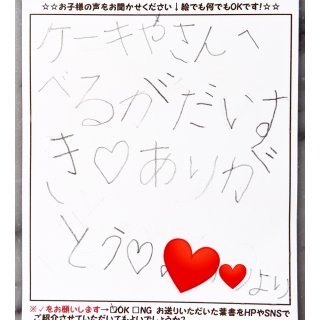 ☆☆お子様の声をお聞かせください↓絵でも何でもOKです!☆☆
ケーキやさんへ
べるがだいす
き♡ありが
とう♡
より
※✓をお願いします→☑OK □NG お送りいただいた葉書をHPやSNSで
ご紹介させていただいてもよいでしょうか?